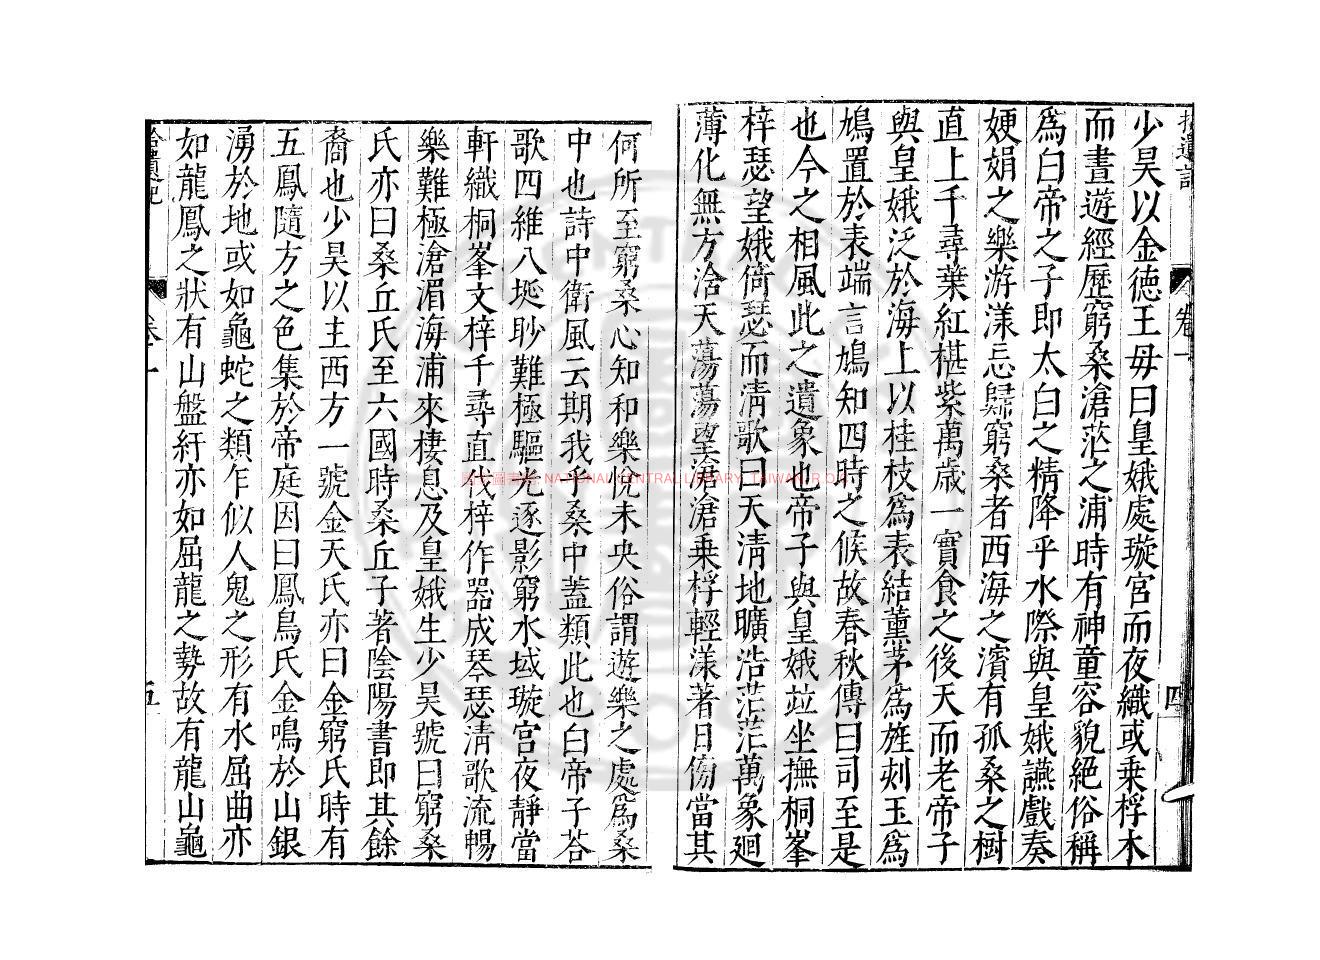 拾遺記
卷一
四
少昊以金德王母曰皇娥處璇宮而夜織或乗桴木
而晝遊經歷窮桑滄茫之浦時有神童容貌絶俗稱
爲白帝之子即太白之精降乎水際與皇娥讌戲奏
㛹娟之樂游漾忘歸窮桑者西海之濱有孤桑之樹
直上千尋葉紅椹紫萬歲一實食之後天而老帝子
與皇娥泛於海上以桂枝爲表結薰茅爲旌刻玉爲
鳩置於表端言鳩知四時之候故春秋傳曰司至是
也今之相風此之遺象也帝子與皇娥竝坐撫桐峯
梓瑟望娥倚瑟而清歌曰天清地曠浩茫茫萬象廻
薄化無方浛天蕩蕩望滄滄乗桴輕漾著日傍當其
何所至窮桑心知和樂悅未央俗謂遊樂之處爲桑
中也詩中衛風云期我乎桑中蓋類此也白帝子荅
歌四維八埏眇難極驅光逐影窮水域璇宮夜靜當
軒織桐峯文梓千尋直伐梓作器成琴瑟清歌流暢
樂難極滄湄海浦來棲息及皇娥生少昊號曰窮桑
氏亦曰桑丘氏至六國時桑丘子著陰陽書即其餘
裔也少昊以主西方一號金天氏亦曰金窮氏時有
五鳳隨方之色集於帝庭因曰鳳鳥氏金鳴於山銀
湧於地或如龜蛇之類乍似人鬼之形有水屈曲亦
如龍鳳之狀有山盤紆亦如屈龍之勢故有龍山龜
拾遺記
卷一
五
國家圖書館 NATIONAL CENTRAL LIBRARY, TAIWAN, R.O.C